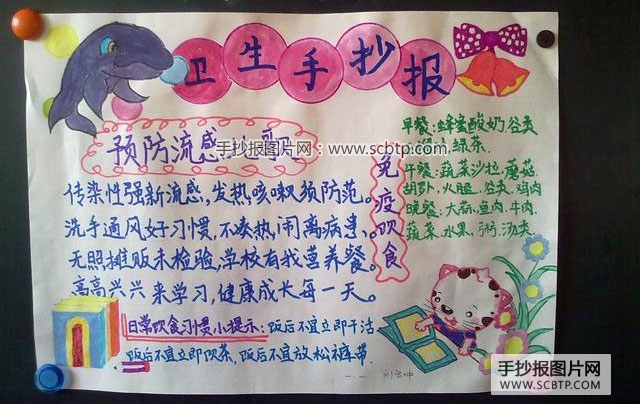 卫生手抄报
预防流感
手抄报图片网：www.scbtp.com
传染性强新流感,发热咳嗽须防范。
洗手通风好习惯,不凑热闹离病患。
无照摊贩未检验,学校有我营养餐。
高高兴兴来学习,健康成长每一天。
免疫饮食
早餐:蜂蜜酸奶谷类
绿茶
午餐:蔬菜沙拉.蘑菇
胡萝卜.火腿.谷类.鸡肉
晚餐:大蒜,鱼肉.牛肉.
蔬菜.水果,粥,汤类
日常饮食习惯小提示:饭后不宜立即干活
饭后不宜立即饮茶,饭后不宜放松裤带.
手抄报图片网
WWW.SCBTP.COM